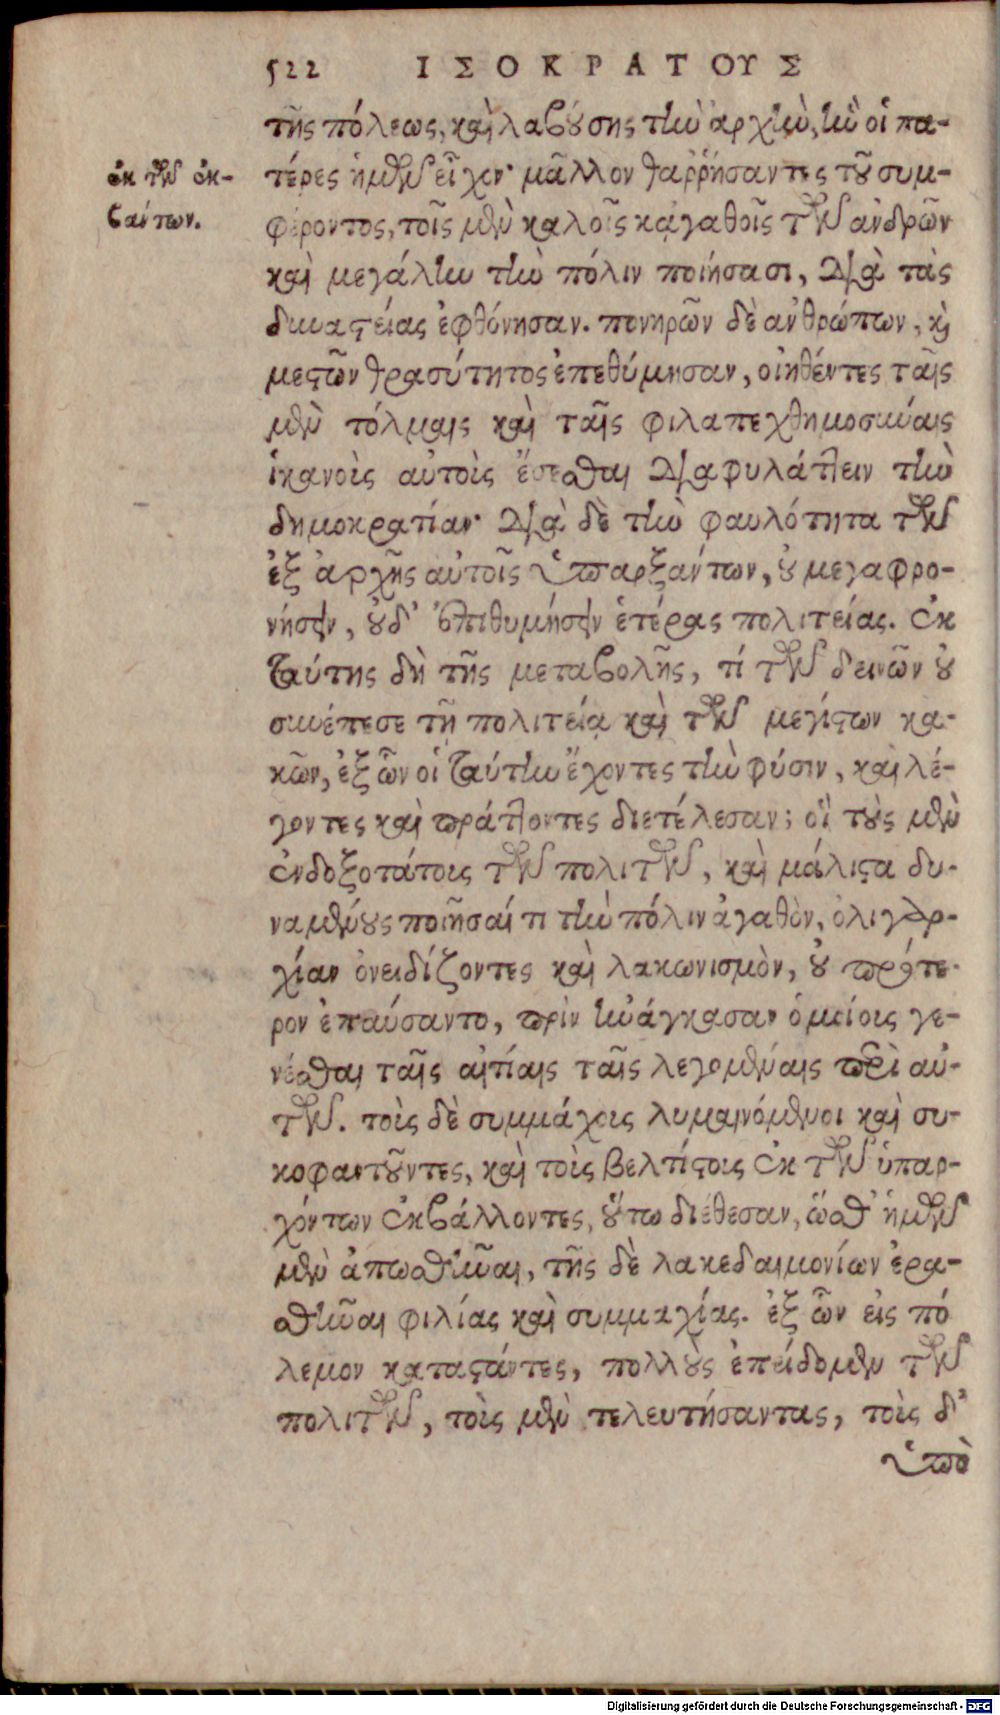 522 ΙΣΟΚΡΑΤΟΥΣ
τῆς πόλεως, καὶ λαβούσης τὴν ἀρχὴν, ἣν οἱ πα-
τέρες ἡμῶν εἶχον· μᾶλλον θαῤῥήσαντες τοῦ συμ-
φέροντος, τοῖς μὲν καλοῖς κἀγαθοῖς τῶν ἀνδρῶν
καὶ μεγάλην τὴν πόλιν ποιήσασι, διὰ τὰς
δυναστείας ἐφθόνησαν. πονηρῶν δὲ ἀνθρώπων, καὶ
μεστῶν θρασύτητος ἐπεθύμησαν, οἰηθέντες ταῖς
μὲν τόλμαις καὶ ταῖς φιλαπεχθημοσύναις
ἱκανοὺς αὐτοὺς ἔσεσθαι διαφυλάττειν τὴν
δημοκρατίαν· διὰ δὲ τὴν φαυλότητα τῶν
ἐξ ἀρχῆς αὐτοῖς ὑπαρξάντων, οὐ μεγαφρο-
νήσειν, οὐδ' ἐπιθυμήσειν ἑτέρας πολιτείας. ἐκ
ταύτης δὴ τῆς μεταβολῆς, τί τῶν δεινῶν οὐ
συνέπεσε τῇ πολιτείᾳ καὶ τῶν μεγίστων κα-
κῶν, ἐξ ὧν οἱ ταύτην ἔχοντες τὴν φύσιν, καὶ λέ-
γοντες καὶ πράττοντες διετέλεσαν; οἳ τοὺς μὲν
ἐνδοξοτάτους τῶν πολιτῶν, καὶ μάλιστα δυ-
ναμένους ποιῆσαί τι τὴν πόλιν ἀγαθὸν, ὀλιγαρ-
χίαν ὀνειδίζοντες καὶ λακωνισμὸν, οὐ πρότε-
ρον ἐπαύσαντο, πρὶν ἠνάγκασαν ὁμοίους γε-
νέσθαι ταῖς αἰτίαις ταῖς λεγομέναις περὶ αὐ-
τῶν. τοὺς δὲ συμμάχους λυμαινόμενοι καὶ συ-
κοφαντοῦντες, καὶ τοὺς βελτίστους ἐκ τῶν ὑπαρ-
χόντων ἐκβάλλοντες, οὕτω διέθεσαν, ὥσθ' ἡμῶν
μὲν ἀπωσθῆναι, τῆς δὲ λακεδαιμονίων ἐρα-
σθῆναι φιλίας καὶ συμμαχίας. ἐξ ὧν εἰς πό
λεμον καταστάντες, πολλοὺς ἐπείδομεν τῶν
πολιτῶν, τοὺς μὲν τελευτήσαντας, τοὺς δ'
ὑπὸ
ἐκ τῶν ἐκ-
ταύτων.
Digitalisierung gefördert durch die Deutsche Forschungsgemeinschaft - DFG